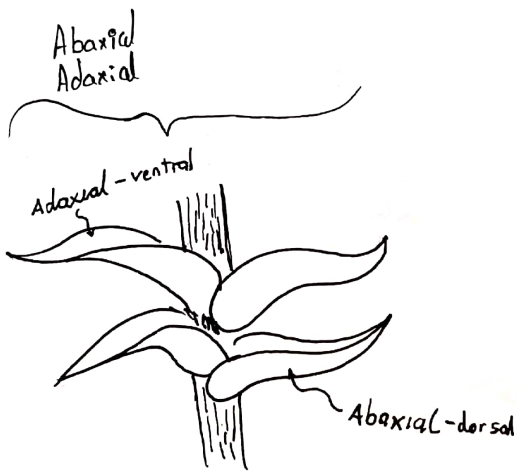 Abaxial
Adaxial
Adaxial-ventral
Abaxial-dorsal